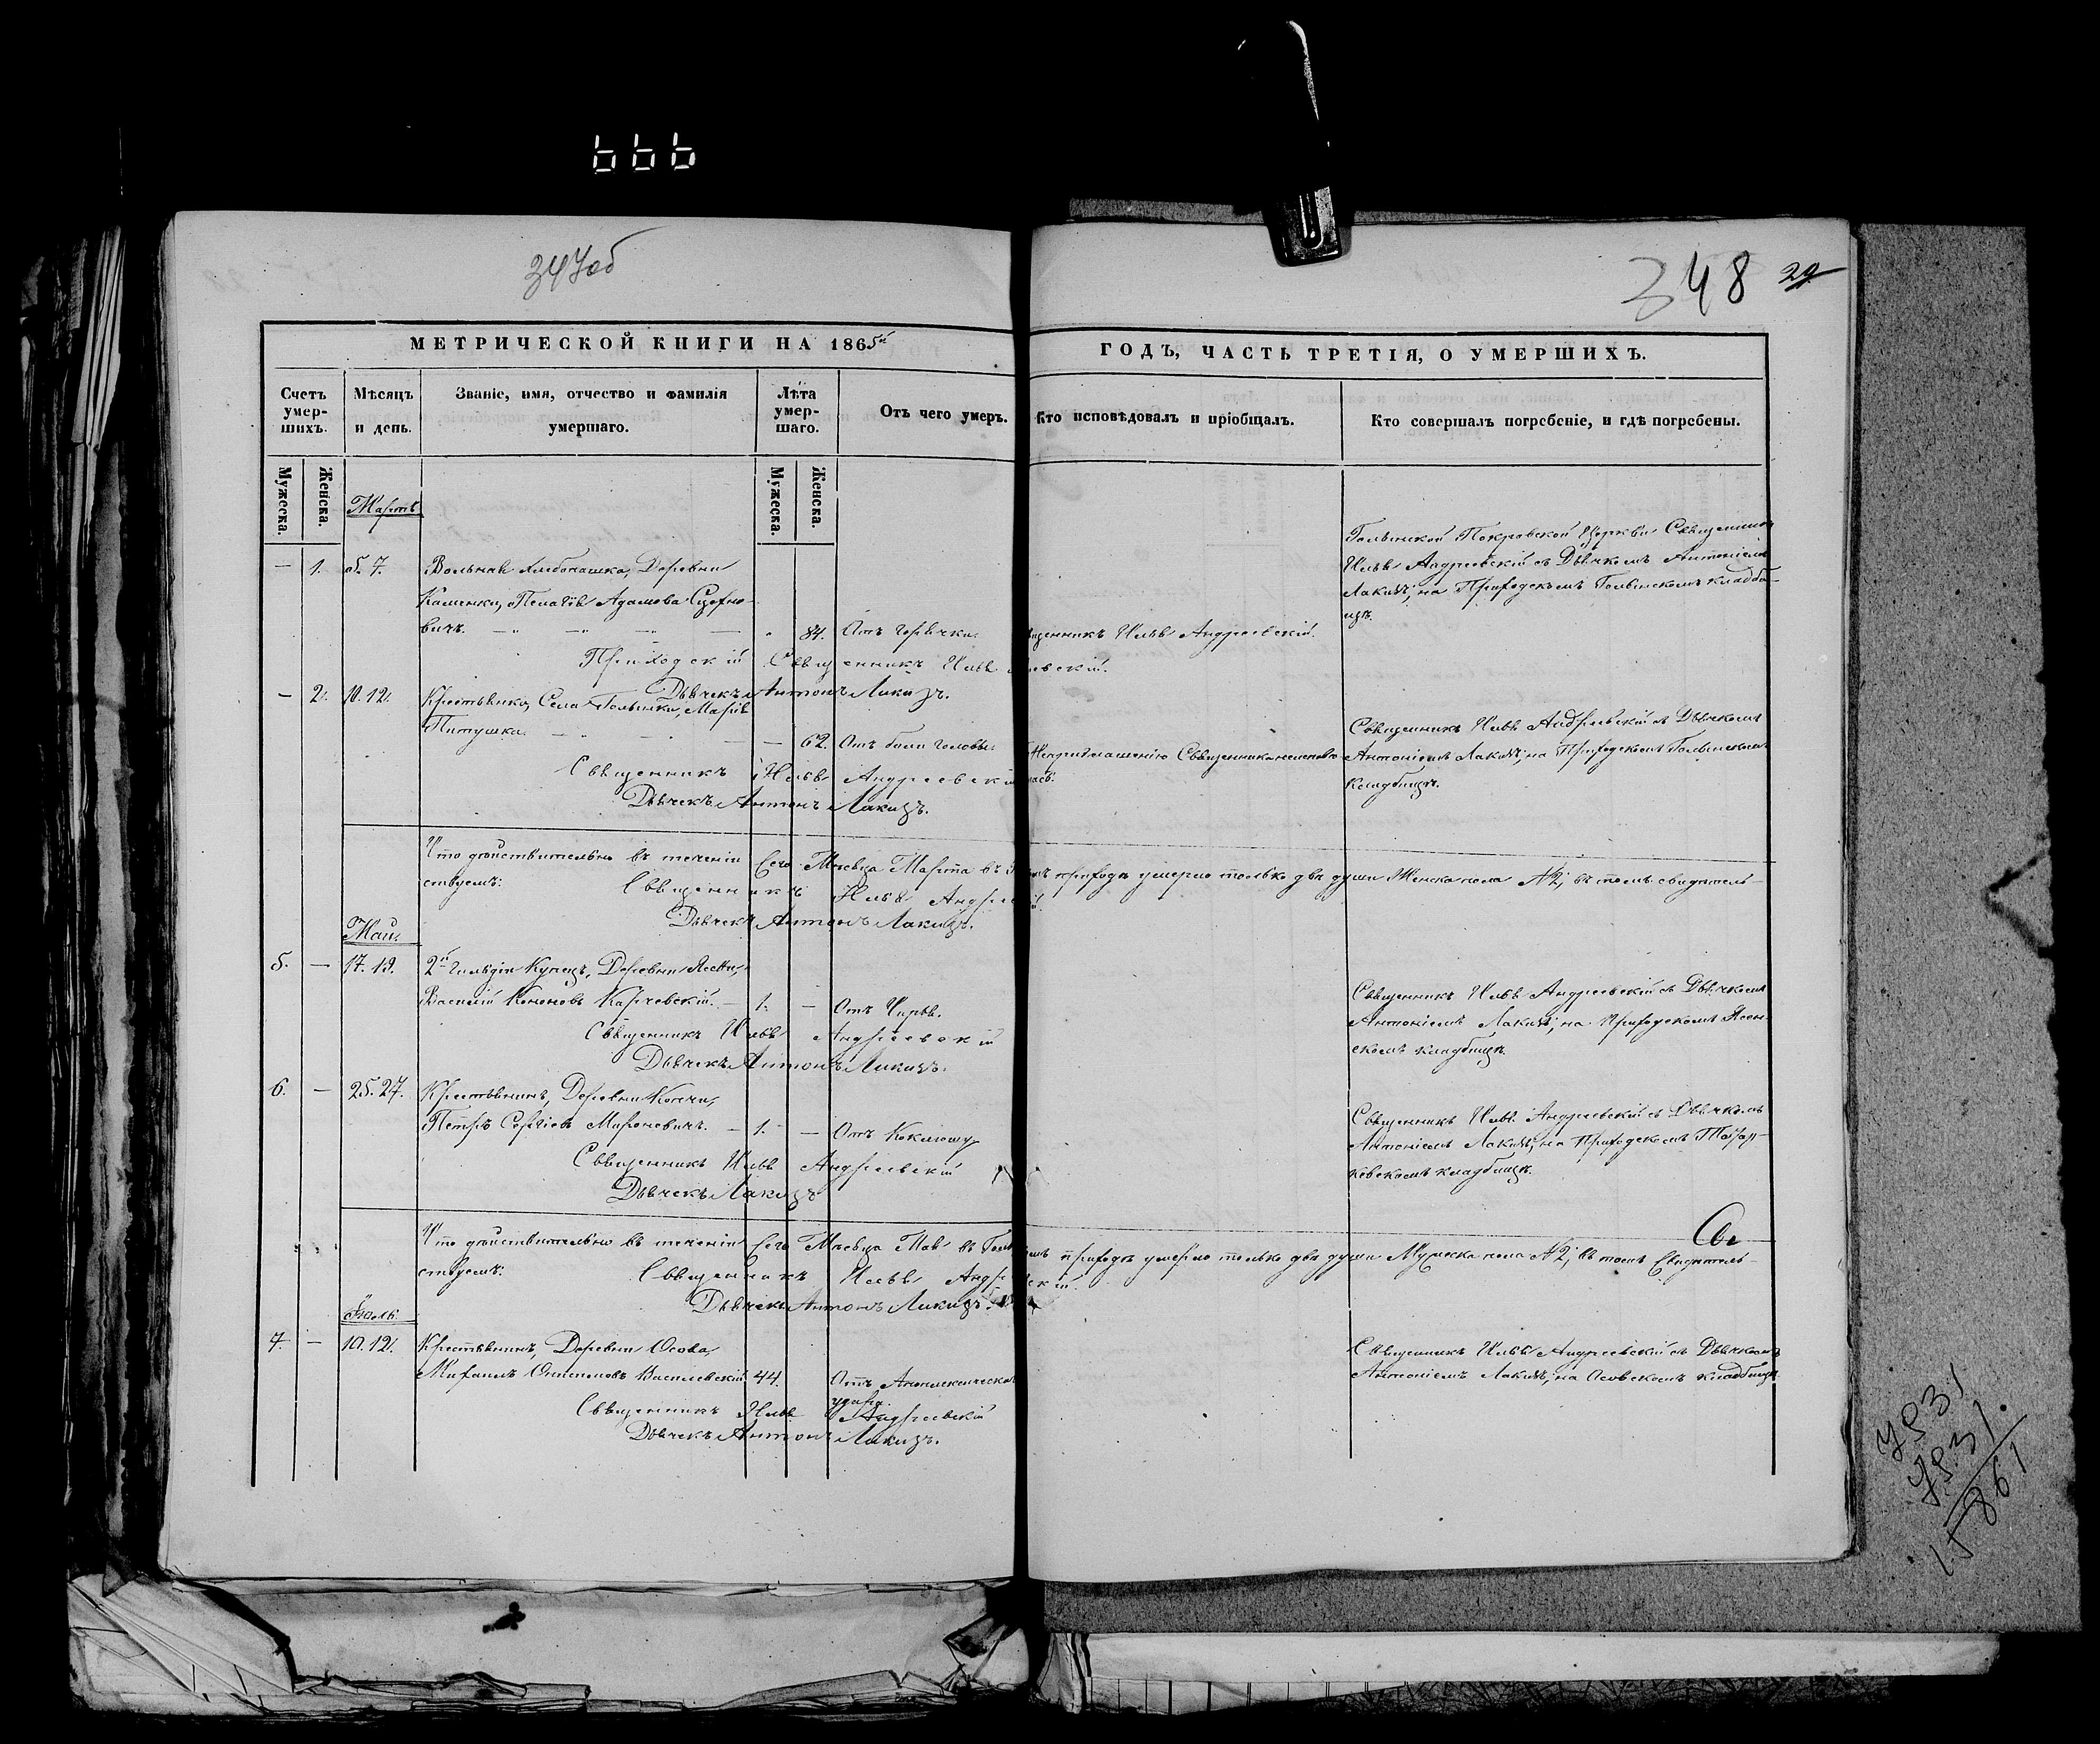 347об
348 29
МЕТРИЧЕСКОЙ КНИГИ НА 1865й
ГОДЪ, ЧАСТЬ ТРЕТІЯ, О УМЕРШИХЪ.
Счетъ умер- шихъ.
Мѣсяцъ и день.
Званіе, имя, отчество и фамилія умершаго.
Лѣта умер- шаго.
Отъ чего умеръ.
Кто исповѣдовалъ и пріобщалъ.
Кто совершалъ погребеніе, и гдѣ погребены.
Мужеска. Женска.
Мужеска. Женска.
Мартъ
— 1. 5. 7. Вольная хлебопашка, Деревни
Каменки, Пелагія Адамова
вичъ. 84. Отъ горячки. Священникъ Илья Андреевскій.
Голынской Покровской Церкви Священник
Илья Андреевскій съ Дьячкомъ Антоніемъ
на Приходскомъ Голынскомъ кладби-
щѣ.
Приходскій Священникъ Илья
Дьячекъ Антонъ Лакизъ.
— 2. 10. 12. Крестьянка, Села Голынки, Марія
Питушка. 62. Отъ боли головы.
Священникъ Илья Андреевскій съ Дьячкомъ
Антоніемъ на Приходскомъ Голынскомъ
кладбищѣ.
Священникъ Илья Андреевскій
Дьячекъ Антонъ Лакизъ.
Что дѣйствительно въ теченіи сего Мѣсяца Марта въ приходѣ умерло только две души Женска пола №2, въ томъ свидѣтель-
ствуемъ: Священникъ Илья
Дьячекъ Антонъ Лакизъ.
Май.
5. — 17. 19. 2й гильдіи Купецъ, Деревни Ясени,
Василій Кононовъ Карчевскій. — 1. —
Священникъ Илья Андреевскій съ Дьячкомъ
Антоніемъ на Приходскомъ Ясен-
скомъ кладбищѣ.
Священникъ Илья Андреевскій
Дьячекъ Антонъ Лакизъ.
6. — 25. 27. Крестьянинъ, Деревни
Петръ Сергіевъ Мироновичъ. — 1. — Отъ Коклюшу
Священникъ Илья Андреевскій съ Дьячкомъ
Антоніемъ на Приходскомъ
кладбищѣ.
Священникъ Илья Андреевскій
Дьячекъ Лакизъ
Что дѣйствительно въ теченіи сего Мѣсяца Мая въ приходѣ умерло только две души Мужеска пола №2, въ томъ свидѣтель-
ствуемъ: Священникъ Илья
Дьячекъ Антонъ Лакизъ.
Іюль.
7. — 10. 12. Крестьянинъ, Деревни Осова,
Михаилъ Василевскій 44. Отъ Апоплексическаго
удара.
Священникъ Илья Андреевскій съ Дьячкомъ
Антоніемъ на Осовскомъ кладбищѣ
Священникъ Илья Андреевскій
Дьячекъ Антонъ Лакизъ.